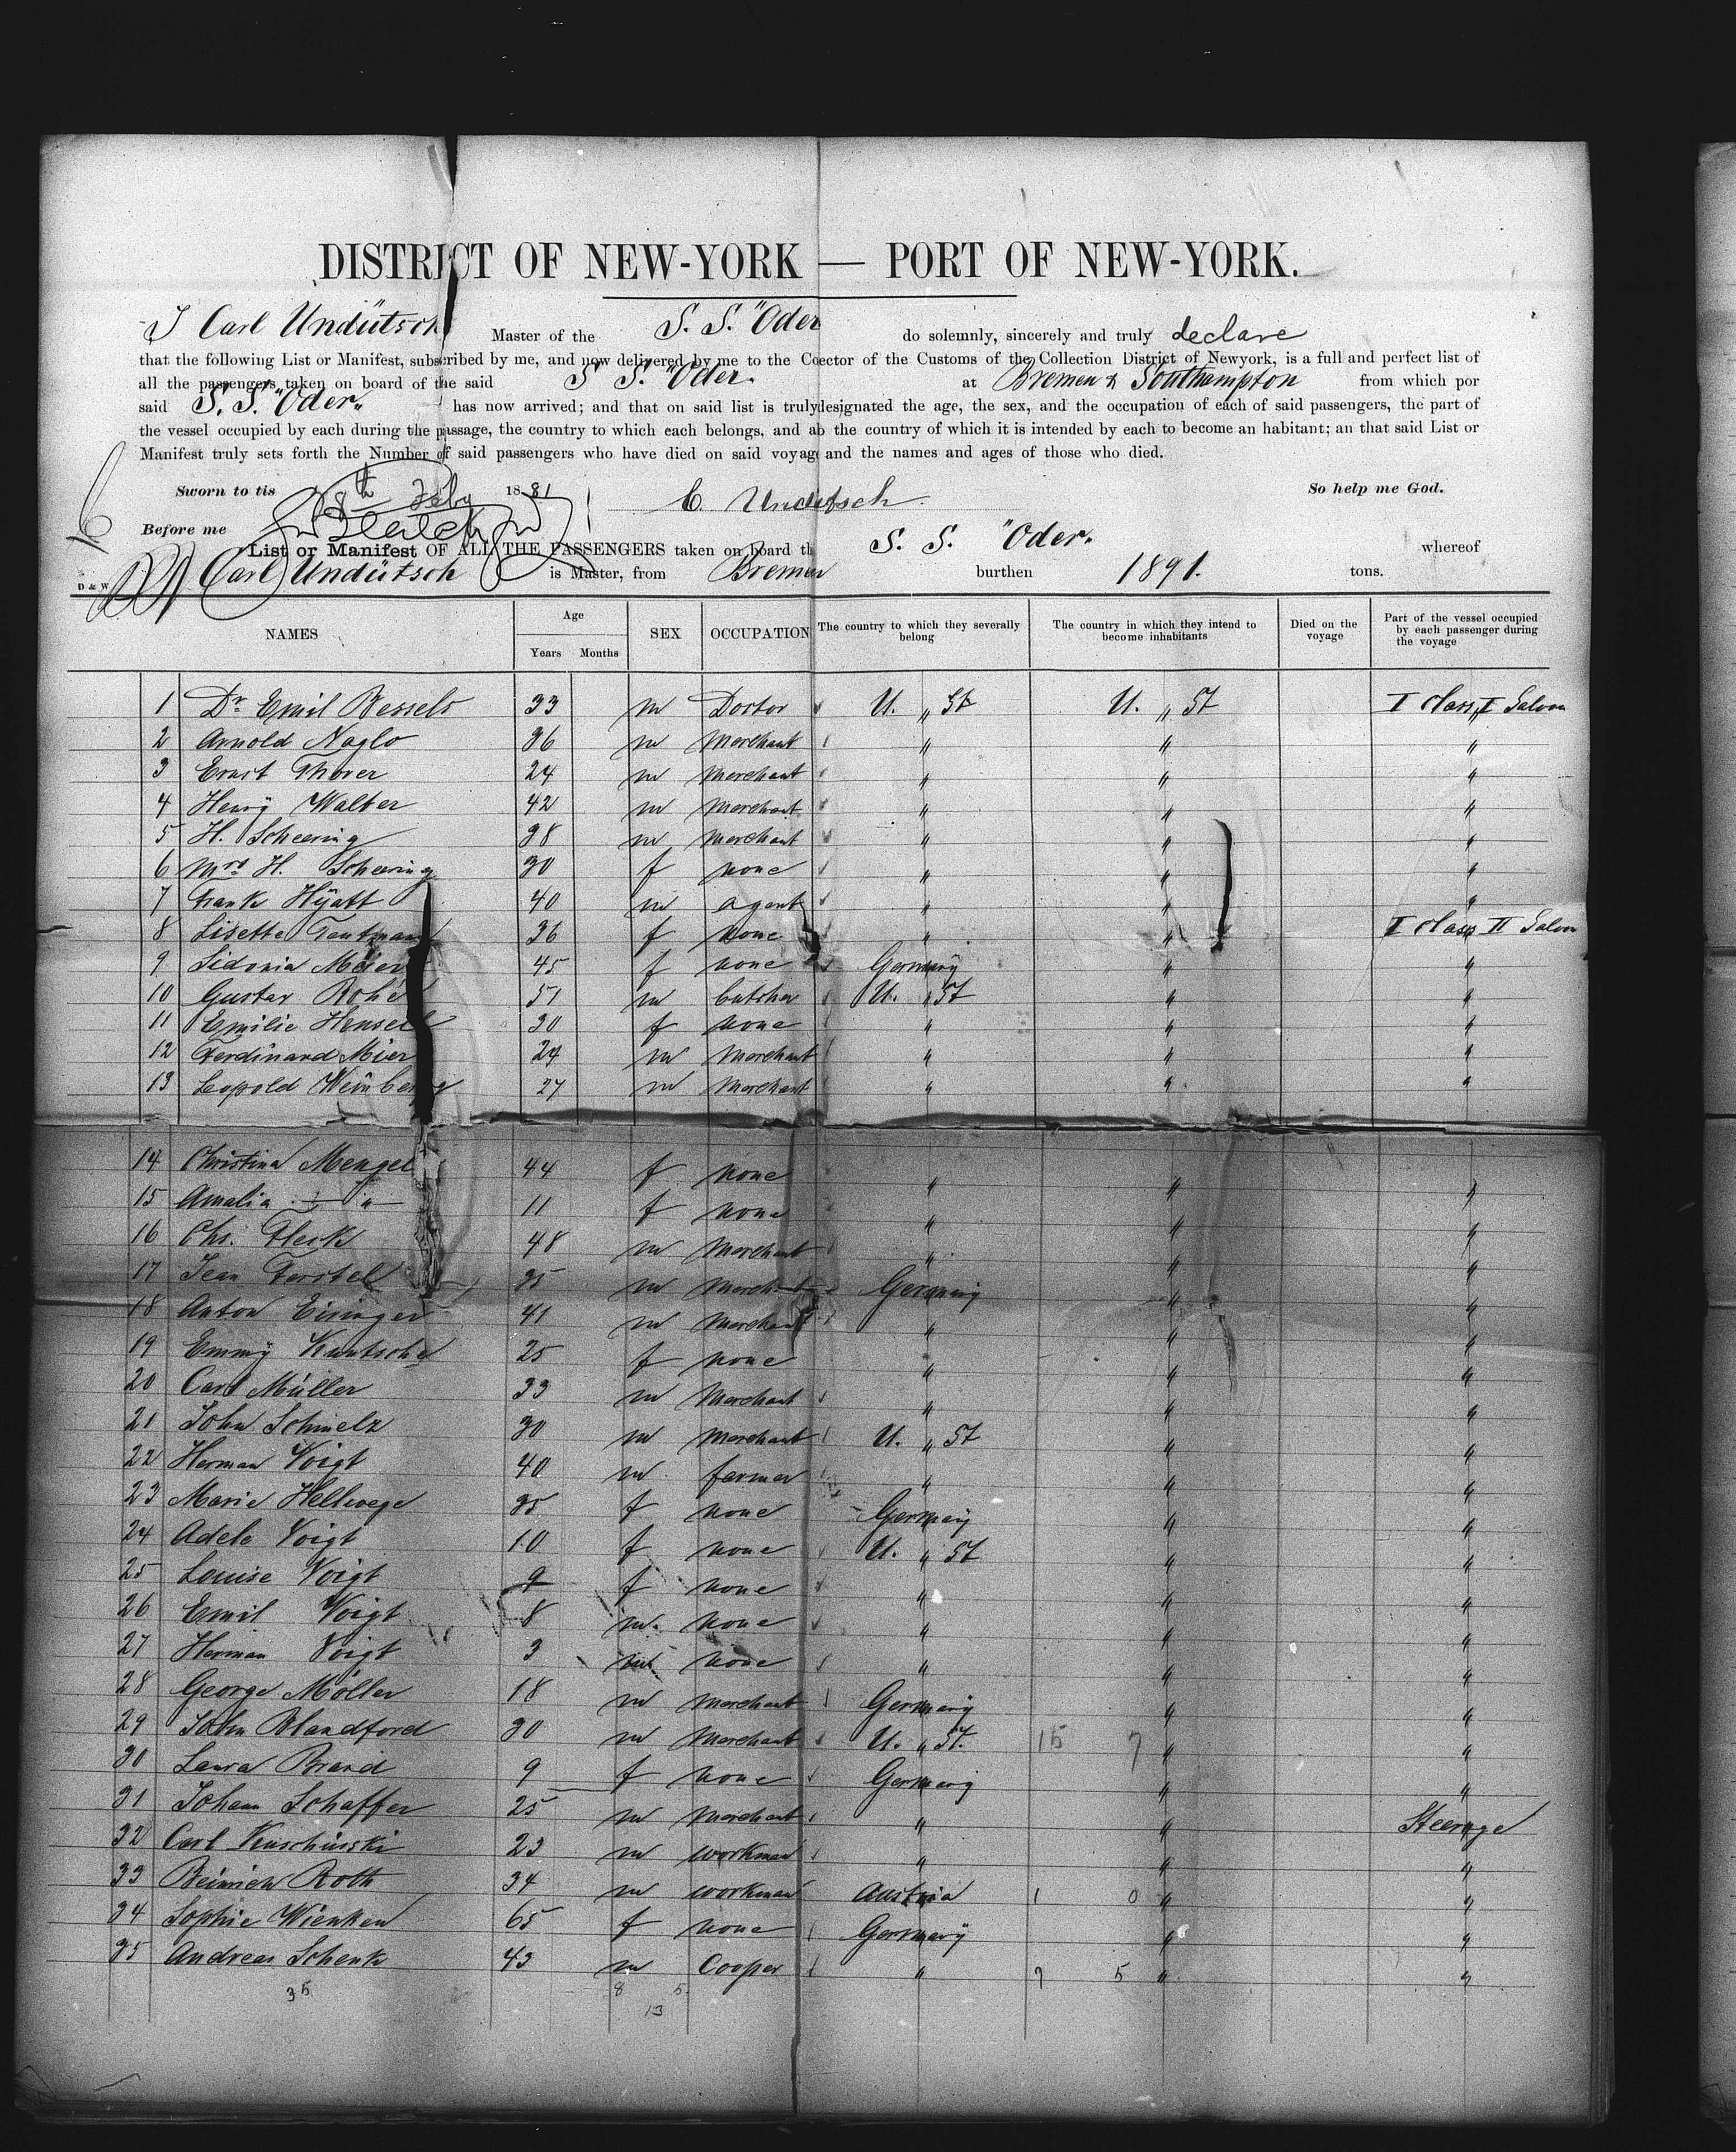 DISTRICT OF NEW-YORK — PORT OF NEW-YORK.
I Carl Undütsch Master of the S. S. "Oder do solemnly, sincerely and truly declare
that the following List or Manifest, subscribed by me, and now delivered by me to the Coector of the Customs of the Collection District of Newyork, is a full and perfect list of
all the passengers taken on board of the said S S. "Oder. at Bremen & Southampton from which por
said S. S. "Oder" has now arrived; and that on said list is truly designated the age, the sex, and the occupation of each of said passengers, the part of
the vessel occupied by each during the passage, the country to which each belongs, and ab the country of which it is intended by each to become an habitant; an that said List or
Manifest truly sets forth the Number of said passengers who have died on said voyag and the names and ages of those who died.
Sworn to tis 8th Feby 1881 C. Undütsch So help me God.
Before me
List or Manifest OF ALL THE PASSENGERS taken on board th S. S. "Oder" whereof
D & W Carl Undütsch is Master, from Bremen burthen 1891. tons.
NAMES Age Years Months SEX OCCUPATION The country to which they severally belong The country in which they intend to become inhabitants Died on the voyage Part of the vessel occupied by each passenger during the voyage
1 Dr Emil Bessels 33 m Doctor U. " St U. " St I Class I Saloon
2 Arnold Naglo 36 m Merchant " " "
3 Ernst Thorer 24 m Merchant " " "
4 Henrÿ Walter 42 m Merchant " " "
5 H. Scheering 38 m Merchant " " "
6 Mrs H. Scheering 30 f none " " "
7 Frank Hÿatt 40 m agent " " "
8 Lisette Tautman 36 f none " " I Class II Saloon
9 Sidonia Meier 45 f none Germanÿ " "
10 Gustav Rohe 51 m butcher U. " St " "
11 Emilie Hensell 30 f none " " "
12 Ferdinand Mier 24 m Merchant " " "
13 Leopold Weinberg 27 m Merchant " " "
14 Christina Mengel 44 f none " " "
15 Amalia " 11 f none " " "
16 Chs. Fleck 48 m Merchant " " "
17 Jean Forstel 35 m Merchant Germany " "
18 Anton Eisinger 41 m Merchant " " "
19 Emmÿ Kuntsche 25 f none " " "
20 Carl Müller 33 m Merchant " " "
21 John Schmelz 30 m Merchant U. " St " "
22 Herman Voigt 40 m farmer " " "
23 Marie Hellwege 35 f none Germanÿ " "
24 Adele Voigt 10 f none U. " St " "
25 Louise Voigt 9 f none " " "
26 Emil Voigt 8 m. none " " "
27 Herman Voigt 3 m none " " "
28 George Möller 18 m Merchant Germany " "
29 John Blandford 30 m Merchant U. " St. 15 7 " "
30 Laura Brand 9 f none Germany " "
31 Johann Schaffer 25 m Merchant " " Steerage
32 Carl Kuschinski 23 m workman " " "
33 Heinrich Roth 34 m workman Austria 1 0 " "
34 Sophie Wienken 65 f none Germanÿ " "
35 Andreas Schenk 43 m Cooper " 7 5 " "
35 8 5
13